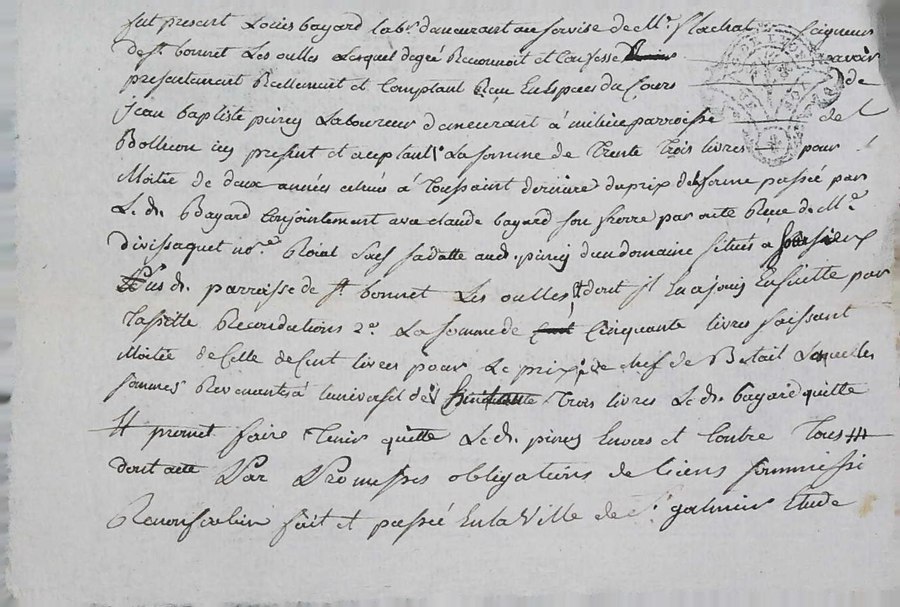 fut present Louis bayard lab.r demeurant au servise de M.r flachat Seigneur
de st bonnet Les oulles Lequel de gré Reconnoit et Confesse avoir
presentement Reellement et Comptant Reçu En Espèces du Cours de
Jean baptiste Laboureur demeurant à parroisse de
icy present et aceptant La somme de Trente Trois livres pour
Moitié de deux années echues à Toussaint derniere du prix de ferme passée par
Le d. Bayard Conjointement avec claude bayard son frerre par acte Recu de M.e
no.re Roial sous sa datte aud. d'un domaine situés a
sus d. parroisse de st bonnet Les oulles et dont il En a jouy Ensuitte par
Tassitte Recondations 2.o La somme de Cinquante livres faissant
Moitié de Celle de Cent livres pour Le prix de chef de Betail Lesquelles
sommes Revenants à l'universel de Trois livres Le d. bayard quitte
et promet faire Tenir quitte Le d. Envers et Contre Tous
dont acte Par Promesses obligations de biens soummissi
Renonsiation fait et passé En la Ville de St galmier Etude